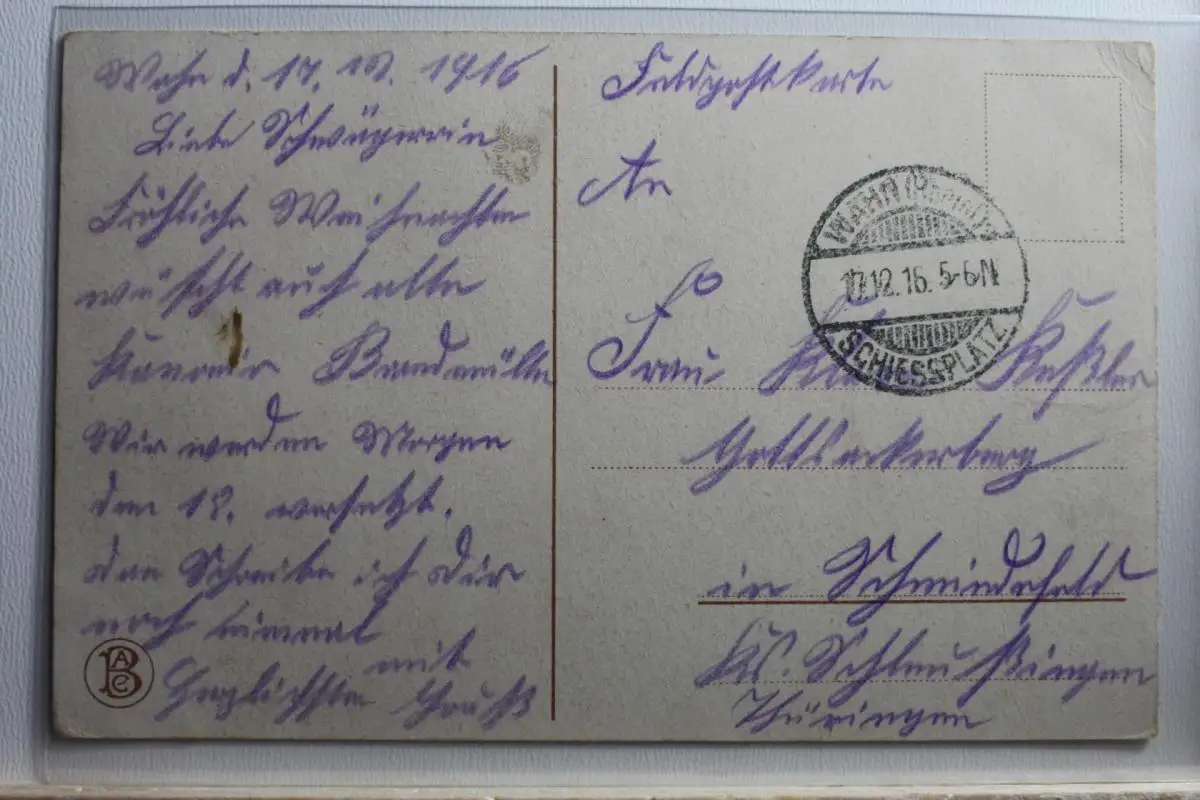 Wahn d. 17. 12. 1916
Liebe Schwägerrin
Fröhliche Weihnachten
wüscht auch alle
Kanonir Brandmülle
Wir werden Morgen
den 18. versetzt.
dan Schreibe ich Dir
noch einmal
mit
Herzlichsten Gruß
ABC
Feldpostkarte
An
Frau Keßler
Gottsackerberg
in Schmiedefeld
Ks. Schleußingen
Thüringen
WAHN (Rheinl.)
17.12.16. 5-6N
SCHIESSPLATZ